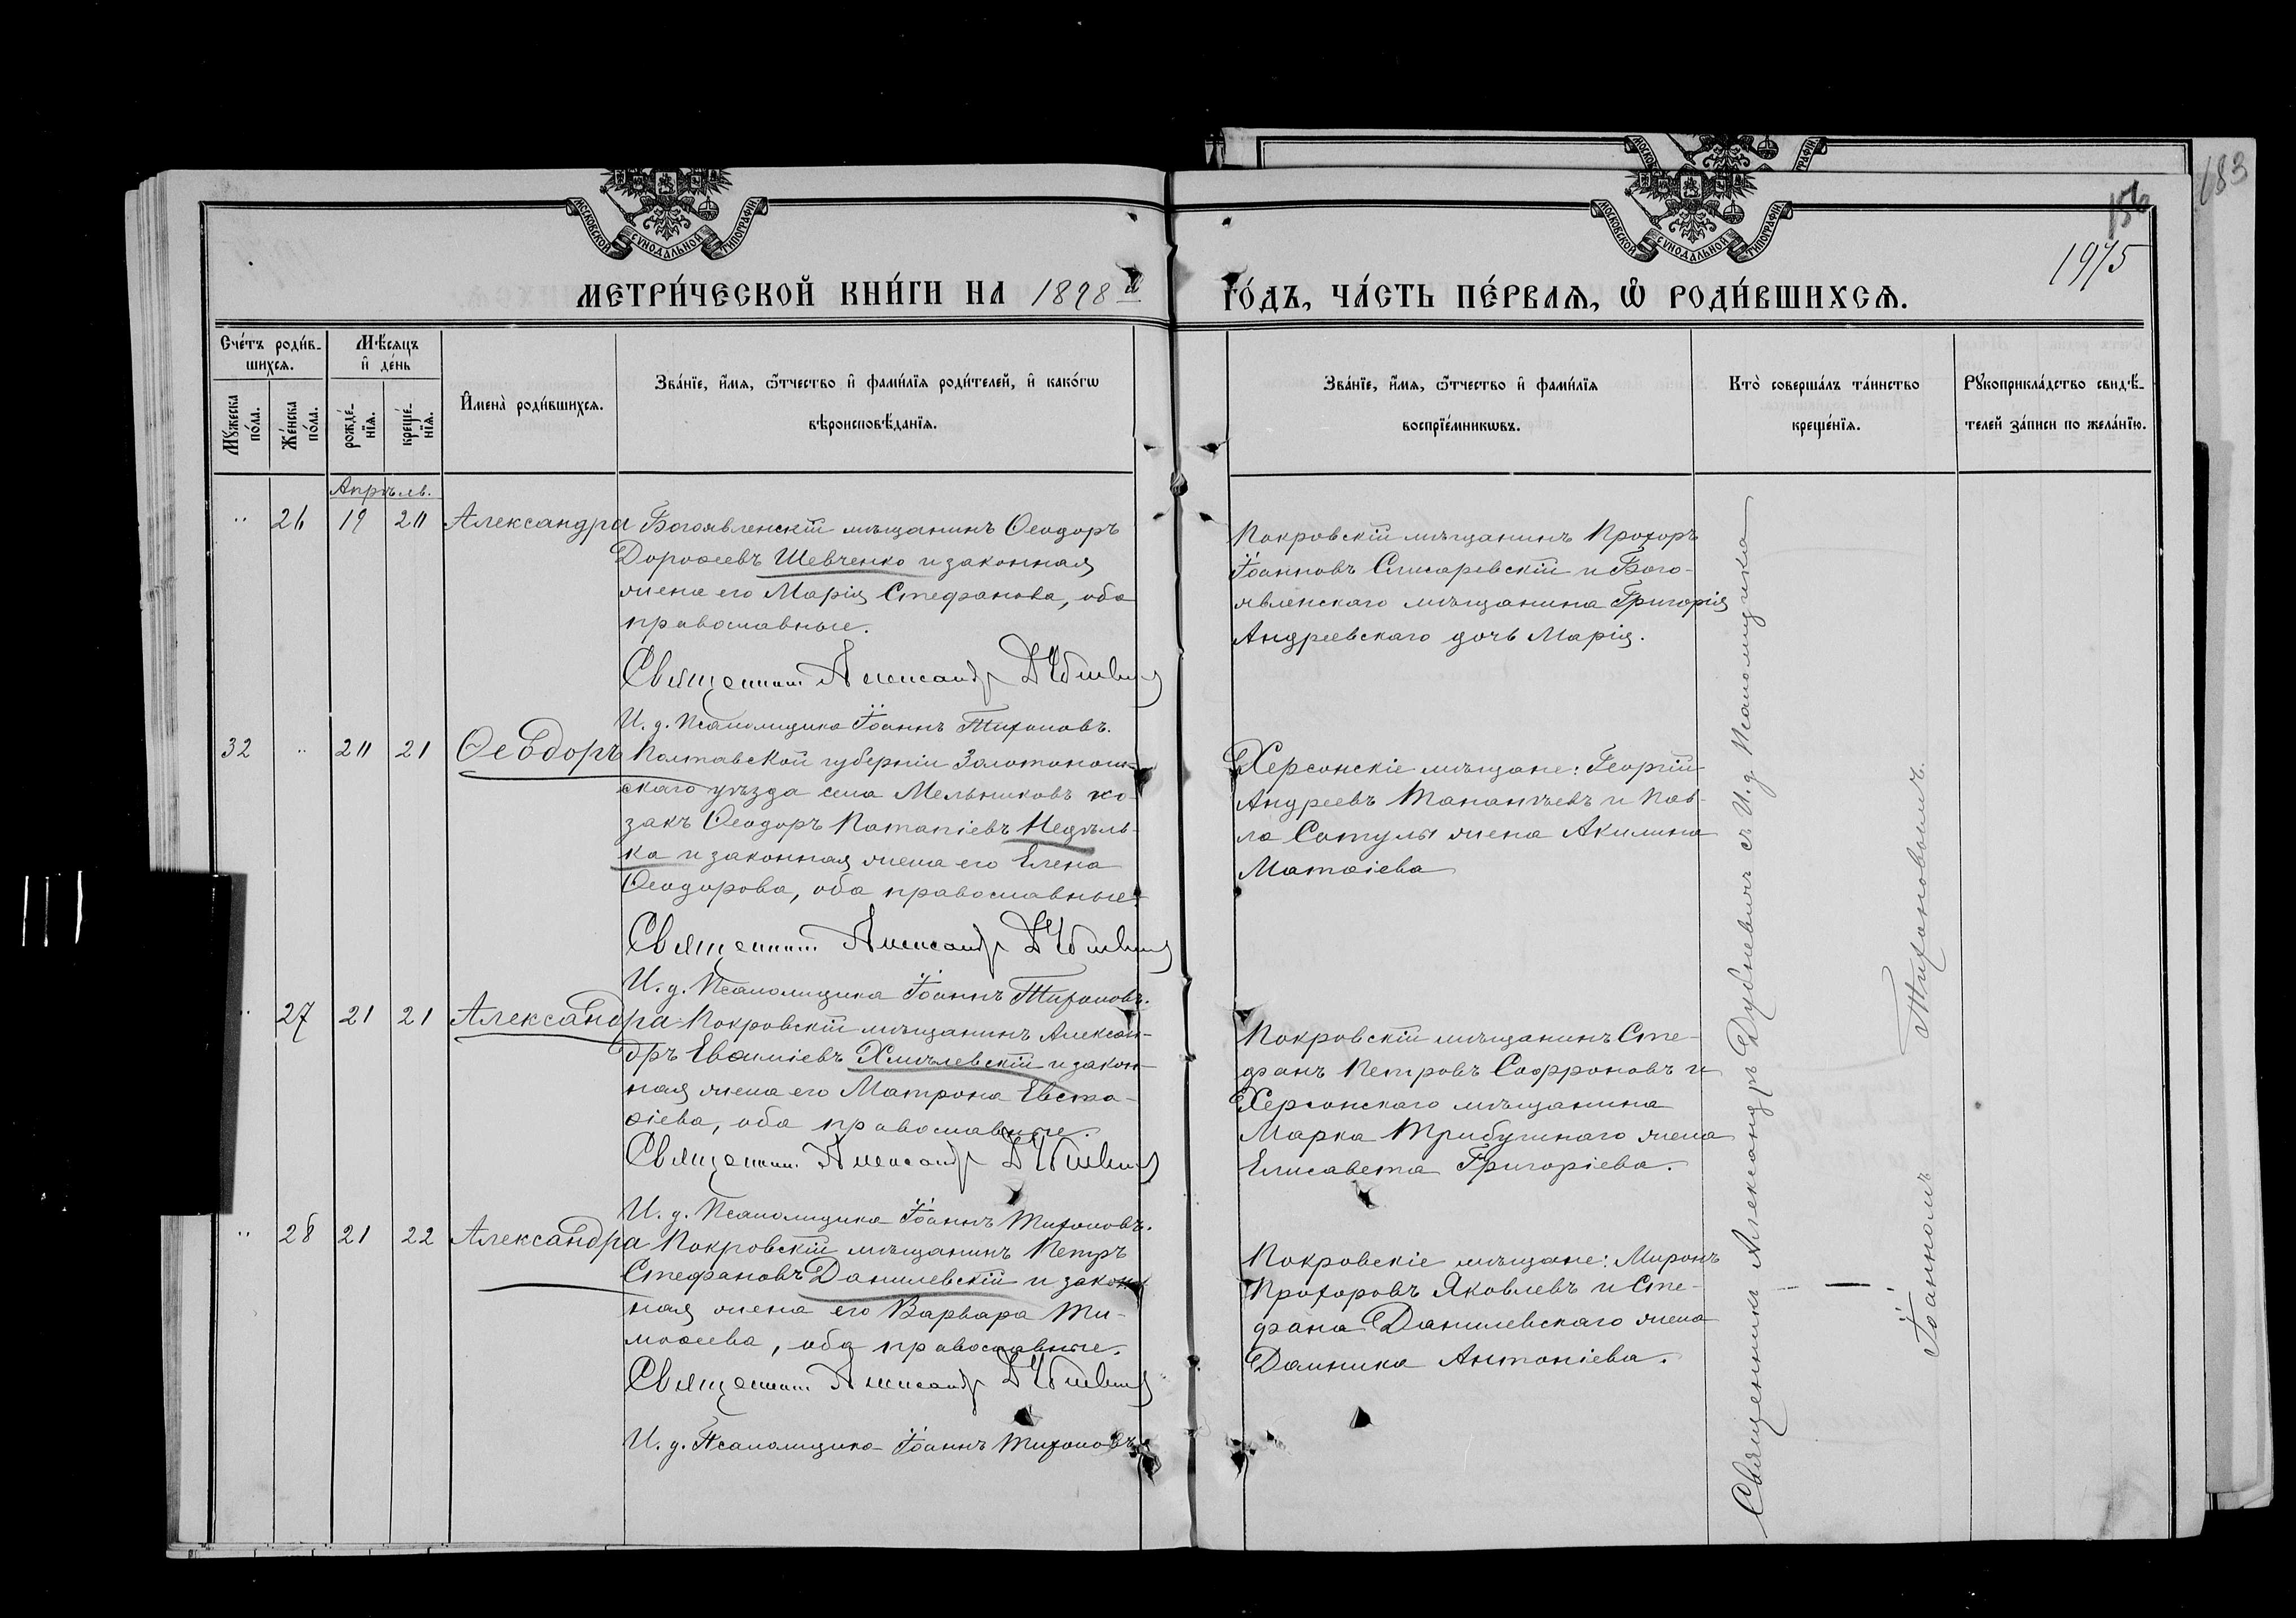 183
156
1975
МОСКОВСКОЙ СУНОДАЛЬНОЙ ТИПОГРАФІИ
МОСКОВСКОЙ СУНОДАЛЬНОЙ ТИПОГРАФІИ
МЕТРИ́ЧЕСКОЙ КНИ́ГИ НА 1898й ГО́ДЪ, ЧА́СТЬ ПЕ́РВАѦ, Ѡ РОДИ́ВШИХСѦ.
Сче́тъ роди́в-
шихсѧ.
Мѣ́сѧцъ
и҆ де́нь
Мꙋ́жеска по́ла.
Же́нска по́ла.
рожде́-нїѧ.
креще́-нїѧ.
И҆мена̀ роди́вшихсѧ.
Зва́нїе, и҆́мѧ, ѻ҆́тчество и҆ фами́лїѧ роди́телей, и҆ како́гѡ
вѣроисповѣ́данїѧ.
Зва́нїе, и҆́мѧ, ѻ҆́тчество и҆ фами́лїѧ
воспрїе́мникѡвъ.
Кто̀ соверша́лъ та́инство
креще́нїѧ.
Рꙋкоприкла́дство свидѣ́-
телей за́писи по жела́нїю.
Апрѣль.
„ 26 19 20 Александра Богоявленскій мѣщанинъ Ѳеодоръ
Дороѳеевъ Шевченко и законная
жена его Марія Стефанова, оба
православные.
Священникъ Александръ Дубневичъ
И. д. Псаломщика Іоаннъ Тихоновъ.
Покровскій мѣщанинъ Прохоръ
Іоанновъ Слисаревскій и Бого-
явленскаго мѣщанина Григорія
Андреевскаго дочь Марія.
32 „ 20 21 Ѳеодоръ Полтавской губерніи Золотонош-
скаго уѣзда села Мельниковъ ко-
закъ Ѳеодоръ Потапіевъ Недѣль-
ка и законная жена его Елена
Ѳеодорова, оба православные.
Священникъ Александръ Дубневичъ
И. д. Псаломщика Іоаннъ Тихоновъ.
Херсонскіе мѣщане: Георгій
Андреевъ Тананаевъ и Пав-
ла Сотулы жена Акилина
Матѳіева
„ 27 21 21 Александра Покровскій мѣщанинъ Алексан-
дръ Евѳиміевъ Хмѣлевскій и закон-
ная жена его Матрона Евста-
ѳіева, оба православные.
Священникъ Александръ Дубневичъ
И. д. Псаломщика Іоаннъ Тихоновъ.
Покровскій мѣщанинъ Сте-
фанъ Петровъ Софроновъ и
Херсонскаго мѣщанина
Марка Трибушнаго жена
Елисавета Григоріева.
„ 28 21 22 Александра Покровскій мѣщанинъ Петръ
Стефановъ Данилевскій и закон-
ная жена его Варвара Ти-
моѳеева, оба православные.
Священникъ Александръ Дубневичъ
И. д. Псаломщика Іоаннъ Тихоновъ
Покровскіе мѣщане: Миронъ
Прохоровъ Яковлевъ и Сте-
фана Данилевскаго жена
Домника Антоніева.
Священникъ Александръ Дубневичъ съ И. д. Псаломщика
Іоанномъ Тихоновомъ.